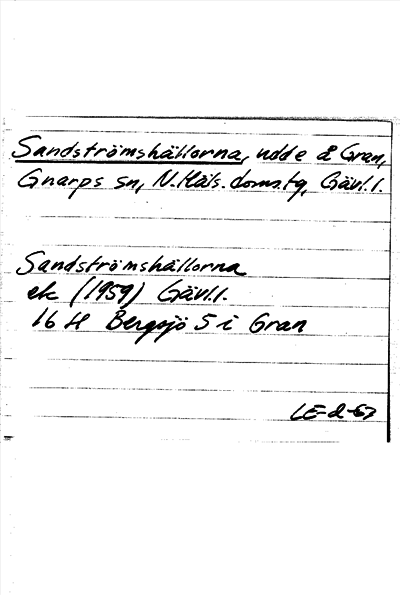 Sandströmshällorna, udde å Gran,
Gnarps sn, N. Häls. doms.tg, Gävl. l.
Sandströmshällorna
ek (1959) Gävl. l.
16 H Bergsjö 5 i Gran